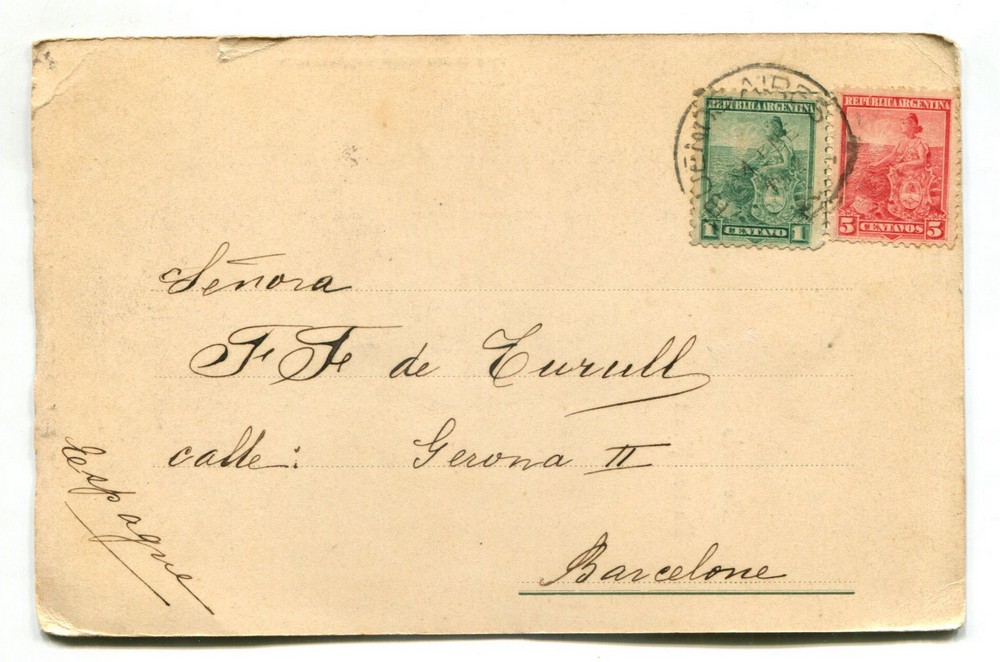 BUENOS AIRES
REPUBLICA ARGENTINA
1 CENTAVO 1
REPUBLICA ARGENTINA
5 CENTAVOS 5
Señora
F F de Turull
calle: Gerona II
Barcelone
Espagne